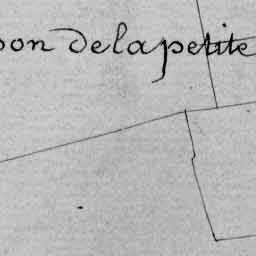 son de la petite